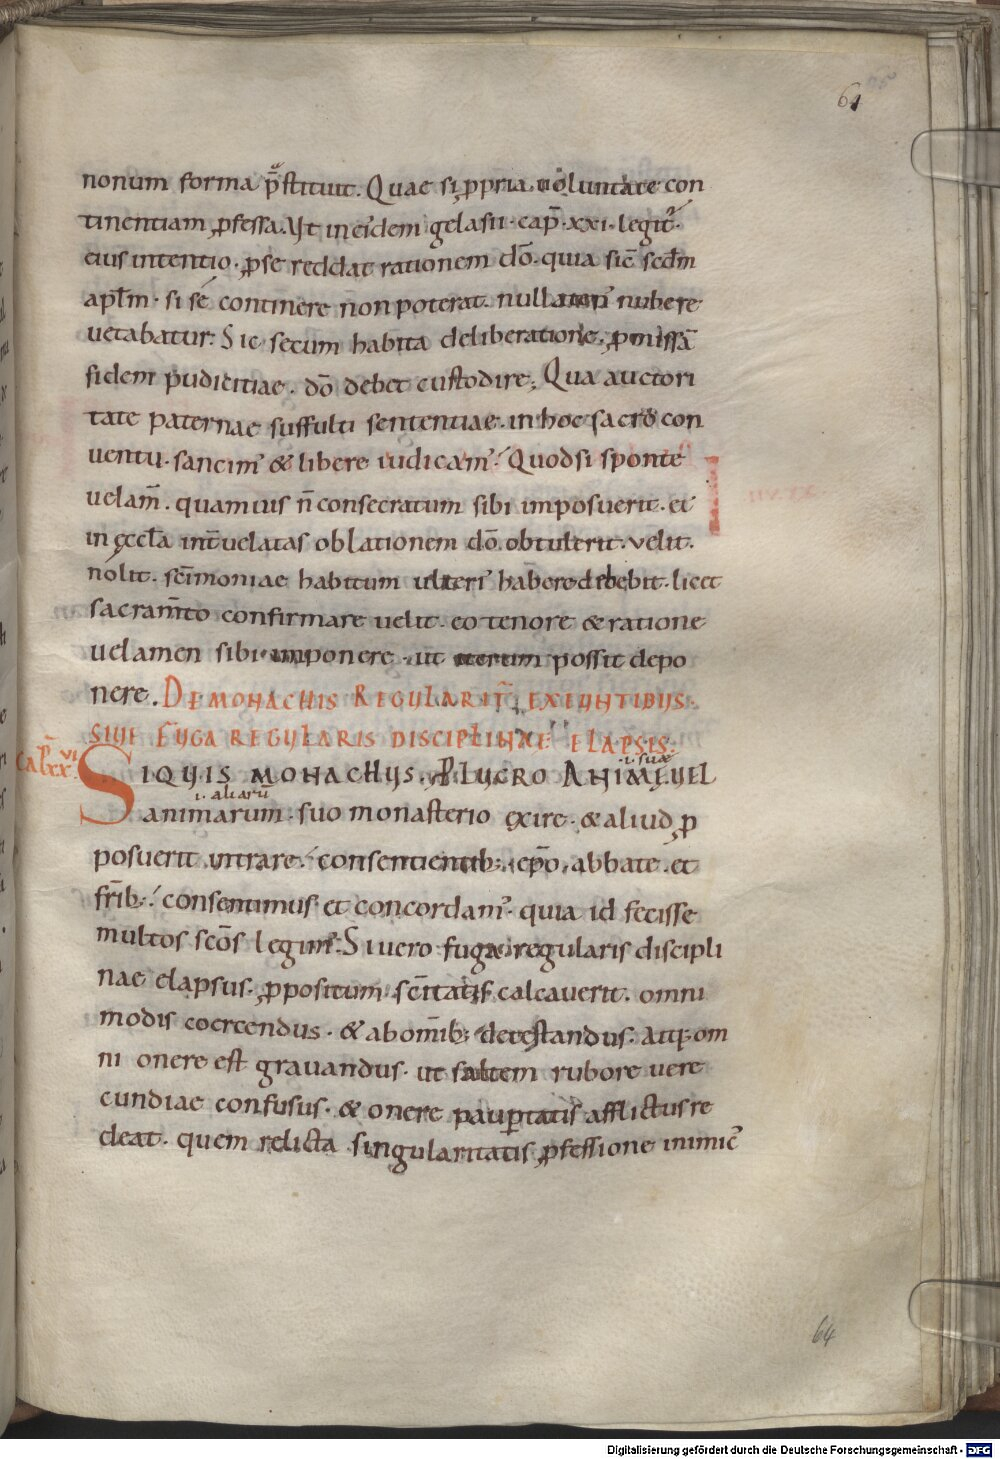 61
nonum forma p̄stituit. Quae si ꝓpria uoluntate con
tinentiam ꝓfessa. Ut in eidem gelasii · cap̄ · xxi · legit᷑.
eius intentio · ꝓ se reddat rationem dō. quia sic̄ sedm̄
apl̄m · si se continere non poterat. nullaten᷒ nubere
uetabatur. Sic secum habita deliberatione, ꝓmissā
fidem pudicitiae. dō debet custodire; Qua auctori
tate paternae suffulti sententiae. in hoc sacro con
uentu. sancim᷒ & libere iudicam᷒. Quod si sponte
uelam̄. quamuis n̄ consecratum sibi imposuerit. et
in ęccl̄a int̄ uelatas oblationem dō. obtulerit. velit.
nolit. sc̄imoniae habitum ulteri᷒ habere debebit. licet
sacram̄to confirmare uelit. eo tenore & ratione
uelamen sibi imponere. ut iterum possit depo
nere. DE MONACHIS REGULARIT̄ EXEUNTIBUS.
SIUE FUGA REGULARIS DISCIPLINAE ELAPSIS.
CAP̄ XXVI
.i. suae
SIQUIS MONACHUS. P LUCRO ANIMĘ UEL
.i. aliarū
animarum. suo monasterio ęxire. & aliud ꝓ
posuerit intrare. consentientib; ep̄o. abbate. et
fr̄ib;. consentimus et concordam᷒. quia id fecisse
multos sc̄os legim᷒. Si uero fuga regularis discipli
nae elapsus. ꝓpositum sc̄itatis calcauerit. omni
modis coercendus. & ab om̄ib; detestandus. Atq; om
ni onere est grauandus. ut saltem rubore uere
cundiae confusus. & onere paup̄tatis afflictus re
deat. quem relicta singularitatis ꝓfessione inimic᷒
64
Digitalisierung gefördert durch die Deutsche Forschungsgemeinschaft - DFG